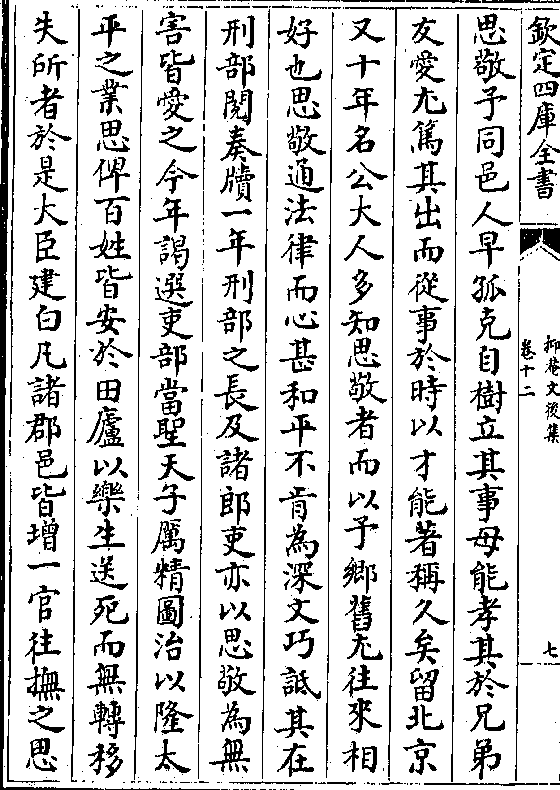 欽定四庫全書
抑菴文後集
卷十二
七
思敬予同邑人早孤克自樹立其事母能孝其於兄弟
友愛尤篤其出而從事於時以才能著稱久矣留北京
又十年名公大人多知思敬者而以予鄉舊尤往來相
好也思敬通法律而心甚和平不肯為深文巧詆其在
刑部閱奏牘一年刑部之長及諸郎吏亦以思敬為無
害皆愛之今年謁選吏部當聖天子厲精圖治以隆太
平之業思俾百姓皆安於田廬以樂生送死而無轉移
失所者於是大臣建白凡諸郡邑皆增一官往撫之思